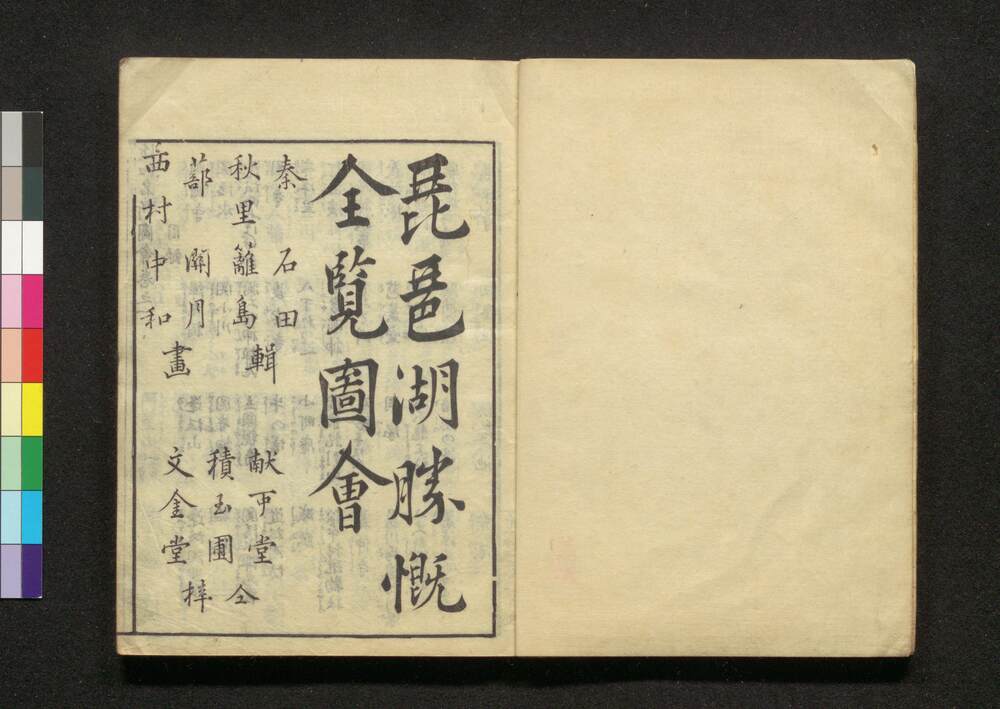 琵琶湖勝慨
全覧圖會
秦石田
秋里籬島
輯
蔀關月
西村中和
畫
献可堂
積玉圃
文金堂
仝梓